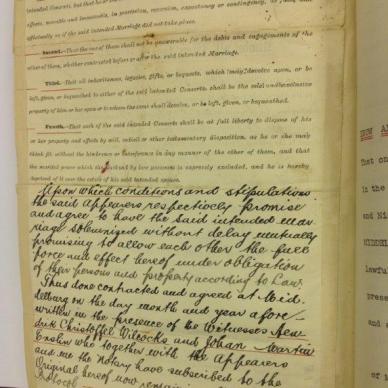 intended Consorts, but that he or she
effects, movable and immovable, in possession, reversion, expectancy or contingency, as fully and
effectually as if the said intended Marriage did not take place.
Second.—That the one of them shall not be answerable for the debts and engagements of the
other of them, whether contracted before or after the said intended Marriage.
Third.—That all inheritances, legacies, gifts, or bequests, which may devolve upon, or be
left, given, or bequeathed to either of the said intended Consorts shall be the sole and exclusive
property of him or her upon or to whom the same shall devolve, or be left, given, or bequeathed.
Fourth.—That each of the said intended Consorts shall be at full liberty to dispose of his
or her property and effects by will, codicil or other testamentary disposition, as he or she may
think fit, without the hindrance or interference in any manner of the other of them, and that
the
deprived of it over the estate of his said intended spouse.
Upon which conditions and stipulations
the said Appearers respectively promise
and agree to have the said intended mar
riage solemnized without delay mutually
promising to allow each other the full
force and effect hereof under obligation
of their persons and property according to Law.
Thus done contracted and agreed at Mid
delburg on the day month and year afore
written in the presence of the Witnesses Hen
drik Christoffel Wilcocks and Johan Martin
who together with the Appearers
and me the Notary have subscribed to the
Original hereof now remain
Protocol
KNOW A
That on
in the
and Ni
MIDDEL
lawfu
presen
and s
of